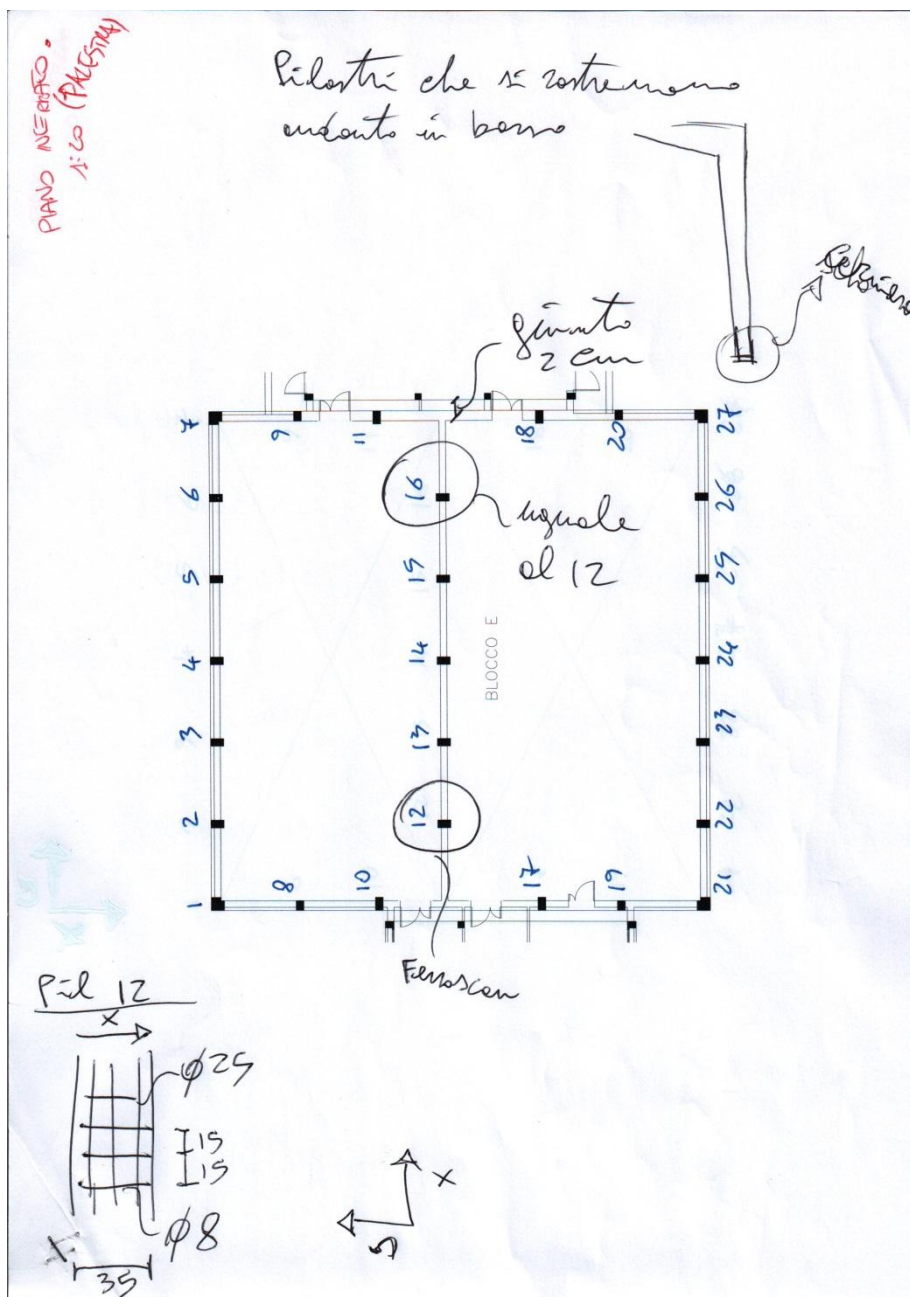 PIANO
(PALESTRA)
Pilastri che si rastremano
andando in basso
giunto
2 cm
7
9
11
18
20
27
6
16
26
uguale
al 12
5
15
25
4
14
24
BLOCCO E
3
13
23
2
12
22
1
8
10
17
19
21
Ferroscan
Pil 12
x
φ25
15
15
φ8
35
x
y